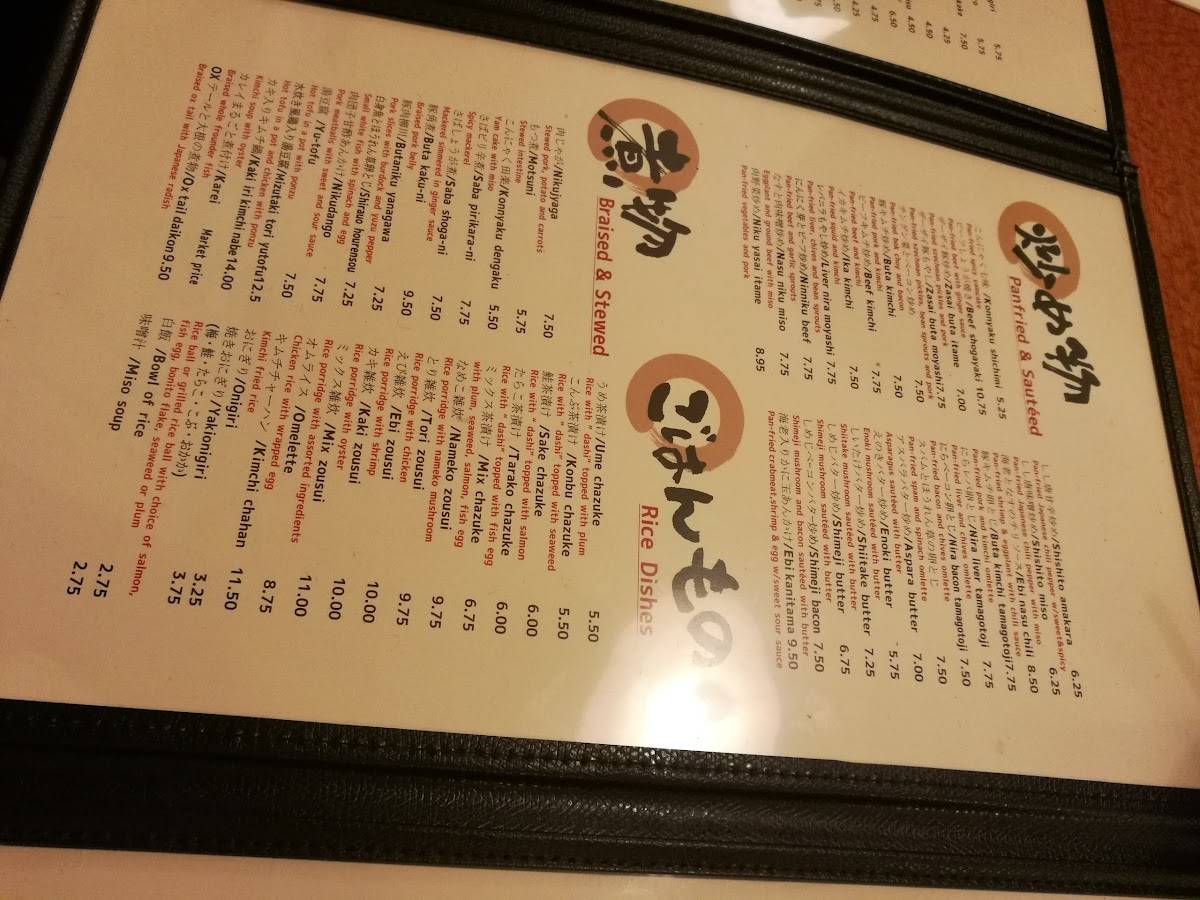 炒め物
Panfried & Sautéed
こんにゃく七味 /Konnyaku shichimi 5.25
Pan-fried spicy yamcake
ビーフしょうが焼き/Beef shogayaki 10.75
Pan-fried beef with ginger sauce
ザーサイ豚炒め/Zasai buta itame 7.00
Pan-fried szechuan pickles and pork
Zasai buta moyashi
Pan-fried szechuan pickles, bean sprouts and pork
チンゲン菜とベーコン炒め 7.50
Pan-fried bak choy and bacon
豚キムチ炒め/Buta kimchi 7.50
Pan-fried pork and kimchi
ビーフキムチ炒め/Beef kimchi 7.75
Pan-fried beef and kimchi
イカキムチ炒め/Ika kimchi 7.50
Pan-fried squid and kimchi
レバニラもやし炒め/Liver nira moyashi 7.75
Pan-fried liver, chives and bean sprouts
にんにく芽とビーフ炒め/Ninniku beef 7.75
Pan-fried beef and garlic sprouts
なすと肉味噌炒め/Nasu niku miso 7.75
Eggplant and ground beef with miso
肉野菜炒め/Niku yasai itame 8.95
Pan-fried vegetables and pork
しし唐甘辛炒め/Shishito amakara 6.25
Pan-fried Japanese chili pepper w/sweet&spicy
しし唐味噌炒め/Shishito miso 6.25
Pan-fried Japanese chili pepper with miso
海老となすのチリソース/Ebi nasu chili 8.50
Pan-fried shrimp & eggplant with chili sauce
豚キムチ卵とじ/Buta kimchi tamagotoji 7.75
Pan-fried pork and kimchi omlette
にらレバ卵とじ/Nira liver tamagotoji 7.75
Pan-fried liver and chives omlette
にらベーコン卵とじ/Nira bacon tamagotoji 7.50
Pan-fried bacon and chives omlette
スパムとほうれん草の卵とじ 7.50
Pan-fried spam and spinach omlette
アスパラバター炒め/Aspara butter 7.00
Asparagus sautéed with butter
えのきバター炒め/Enoki butter 5.75
Enoki mushroom sautéed with butter
しいたけバター炒め/Shiitake butter 7.25
Shiitake mushroom sautéed with butter
しめじバター炒め/Shimeji butter 6.75
Shimeji mushroom sautéed with butter
しめじベーコンバター炒め/Shimeji bacon 7.50
Shimeji mushroom and bacon sautéed with butter
海老入りかに玉あんかけ/Ebi kanitama 9.50
Pan-fried crabmeat,shrimp & egg w/sweet sour sauce
煮物
Braised & Stewed
肉じゃが/Nikujyaga 7.50
Stewed pork, potato and carrots
もつ煮/Motsuni 5.75
Stewed intestine
こんにゃく田楽/Konnyaku dengaku 5.50
Yam cake with miso
さばピリ辛煮/Saba pirikara-ni 7.75
Spicy mackerel
さばしょうが煮/Saba shoga-ni 7.50
Mackerel simmered in ginger sauce
豚角煮/Buta kaku-ni 9.50
Braised pork belly
豚肉柳川/Butaniku yanagawa 7.25
Pork slices with burdock and yuzu pepper
白身魚とほうれん草卵とじ/Shirauo hourensou 7.25
Small white fish with spinach and egg
肉団子甘酢あんかけ/Nikudango 7.75
Pork meatballs with sweet and sour sauce
湯豆腐 /Yu-tofu 7.50
Hot tofu in a pot with ponzu
水炊き風鶏入り湯豆腐/Mizutaki tori yutofu12.5
Hot tofu in a pot and chicken with ponzu
カキ入りキムチ鍋/Kaki iri kimchi nabe14.00
Kimchi soup with oyster
カレイまるごと煮付け/Karei Market price
Braised whole frounder fish
OXテールと大根の煮物/Ox tail daikon9.50
Braised ox tail with Japanese radish
ごはんもの
Rice Dishes
うめ茶漬け/Ume chazuke 5.50
Rice with "dashi" topped with plum
こんぶ茶漬け /Konbu chazuke 5.50
Rice with "dashi" topped with seaweed
鮭茶漬け /Sake chazuke 6.00
Rice with "dashi" topped with salmon
たらこ茶漬け /Tarako chazuke 6.00
Rice with "dashi" topped with fish egg
ミックス茶漬け /Mix chazuke 6.75
with plum, seaweed, salmon, fish egg
なめこ雑炊 /Nameko zousui 9.75
Rice porridge with nameko mushroom
とり雑炊 /Tori zousui 9.75
Rice porridge with chicken
えび雑炊 /Ebi zousui 10.00
Rice porridge with shrimp
カキ雑炊 /Kaki zousui 10.00
Rice porridge with oyster
ミックス雑炊 /Mix zousui 11.00
Rice porridge with assorted ingredients
オムライス /Omelette 8.75
Chicken rice with wrapped egg
キムチチャーハン /Kimchi chahan 11.50
Kimchi fried rice
おにぎり/Onigiri 3.25
焼きおにぎり/Yakionigiri 3.75
(梅・鮭・たらこ・こぶ・おかか)
Rice ball or grilled rice ball with choice of salmon,
fish egg, bonito flake, seaweed or plum
白飯 /Bowl of rice 2.75
味噌汁 /Miso soup 2.75